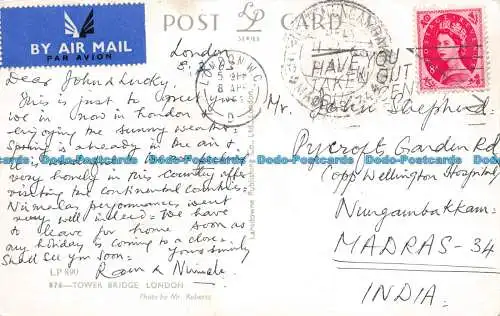 POST CARD
LP
SERIES
BY AIR MAIL
PAR AVION
London
Dear John & Lucky,
This is just to greet you
we in now in London &
enjoying the sunny weather.
Spring is already in the air &
very lovely in this country after
visiting the continental countries.
Nirmalas performances went
very well indeed. We have
to leave for home soon as
my holiday is coming to a close.
Shall see you soon. Yours sincerely
Ram & Nirmala
LONDON W.C.
HAVE YOU
TAKEN OUT
Mr. John Shepherd.
Pycroft Garden Rd
(opp Wellington Hospital)
Nungambakkam.
MADRAS-34
INDIA.
L.P 890
874—TOWER BRIDGE LONDON
Photo by Mr. Roberts
Lansdowne Publishing Co., Ltd., London
Dodo-Postcards Dodo-Postcards Dodo-Postcards Dodo-Postcards